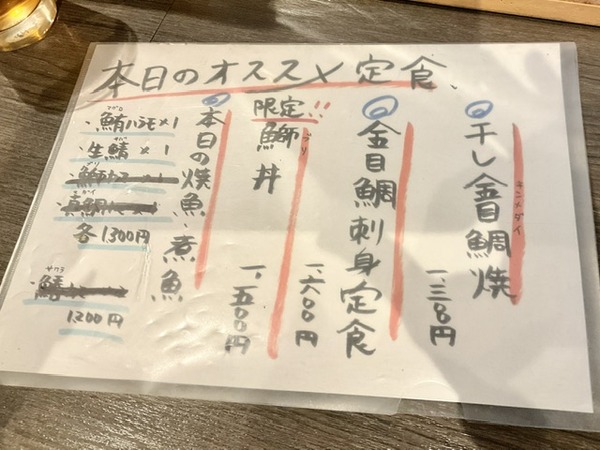 本日のオススメ定食
干し金目鯛焼
キンメダイ
一三〇〇円
金目鯛刺身定食
一、六〇〇円
限定!!
鰤丼
ブリ
一、五〇〇円
本日の焼魚・煮魚
マグロ
鮪ハラモ×1
サバ
生鯖×1
ブリ
真鯛
各1300円
サワラ
鰆
1200円